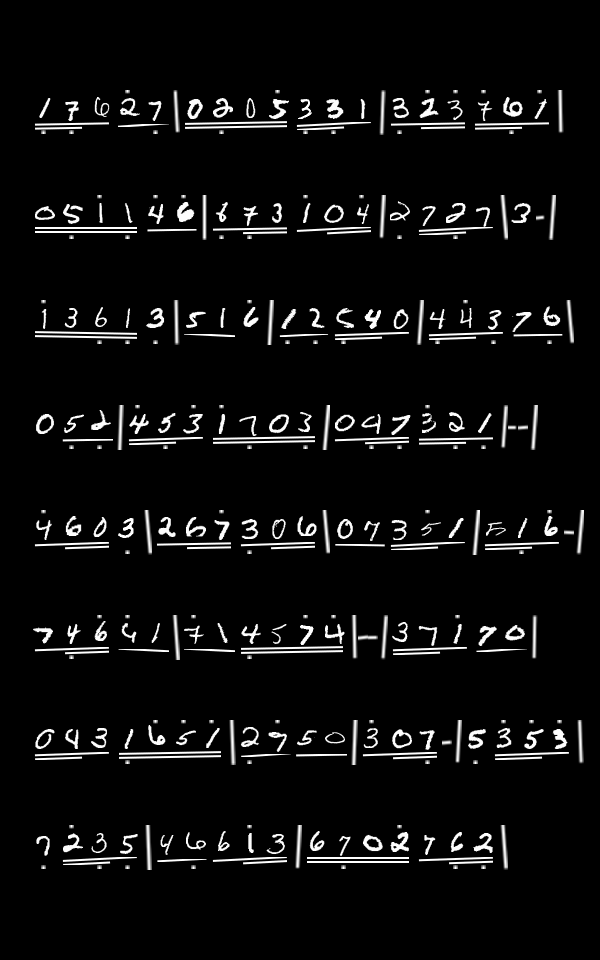 1 7 6 2 7 | 0 2 0 5 3 3 1 | 3 2 3 7 6 1 |
0 5 1 1 4 6 | 6 7 3 1 0 4 | 2 7 2 7 | 3 - |
1 3 6 1 3 | 5 1 6 | 1 2 5 4 0 | 4 4 3 7 6 |
0 5 2 | 4 5 3 1 7 0 3 | 0 9 7 3 2 1 | - - |
4 6 0 3 | 2 6 7 3 0 6 | 0 7 3 5 1 | 5 1 6 - |
7 4 6 4 1 | 7 1 4 5 7 4 | - - | 3 7 1 7 0 |
0 4 3 1 6 5 1 | 2 7 5 0 | 3 0 7 - | 5 3 5 3 |
7 2 3 5 | 4 6 6 1 3 | 6 7 0 2 7 6 2 |